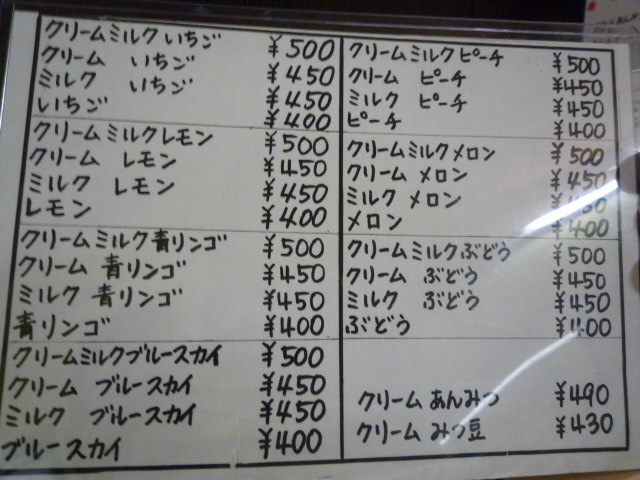 クリームミルクいちご ¥500
クリーム いちご ¥450
ミルク いちご ¥450
いちご ¥400
クリームミルクレモン ¥500
クリーム レモン ¥450
ミルク レモン ¥450
レモン ¥400
クリームミルク青リンゴ ¥500
クリーム 青リンゴ ¥450
ミルク 青リンゴ ¥450
青リンゴ ¥400
クリームミルクブルースカイ ¥500
クリーム ブルースカイ ¥450
ミルク ブルースカイ ¥450
ブルースカイ ¥400
クリームミルクピーチ ¥500
クリーム ピーチ ¥450
ミルク ピーチ ¥450
ピーチ ¥400
クリームミルクメロン ¥500
クリーム メロン ¥450
ミルク メロン ¥450
メロン ¥400
クリームミルクぶどう ¥500
クリーム ぶどう ¥450
ミルク ぶどう ¥450
ぶどう ¥400
クリームあんみつ ¥490
クリームみつ豆 ¥430